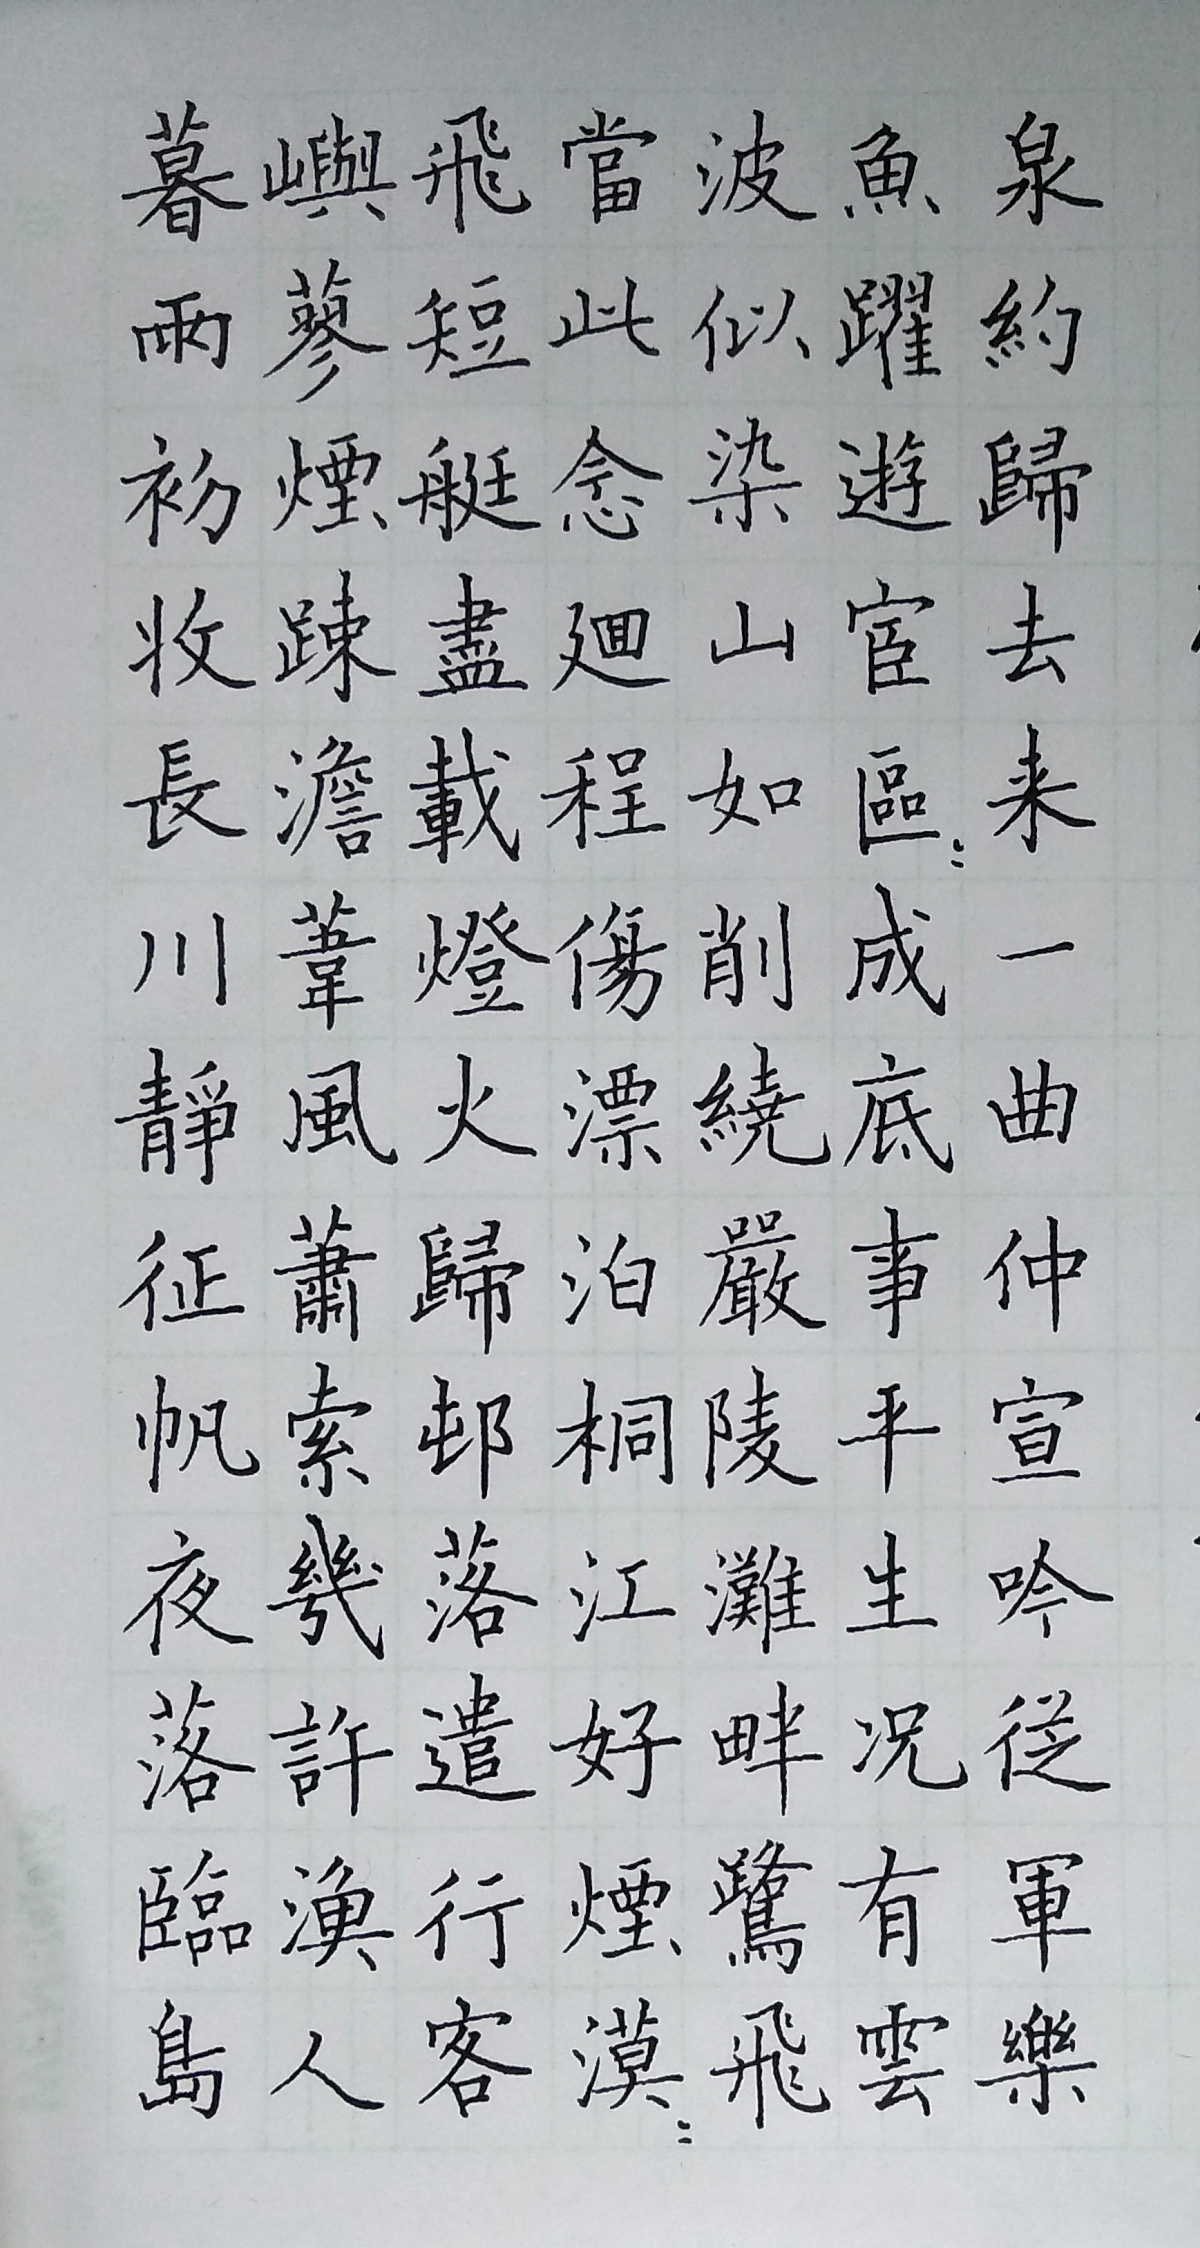 暮雨初收長川靜征帆夜落臨島
嶼蓼煙踈澹葦風蕭索幾許漁人
飛短艇盡載燈火歸邨落遣行客
當此念廻程傷漂泊桐江好煙漠〻
波似染山如削繞嚴陵灘畔鷺飛
魚躍遊宦區〻成底事平生况有雲
泉約歸去来一曲仲宣吟従軍樂